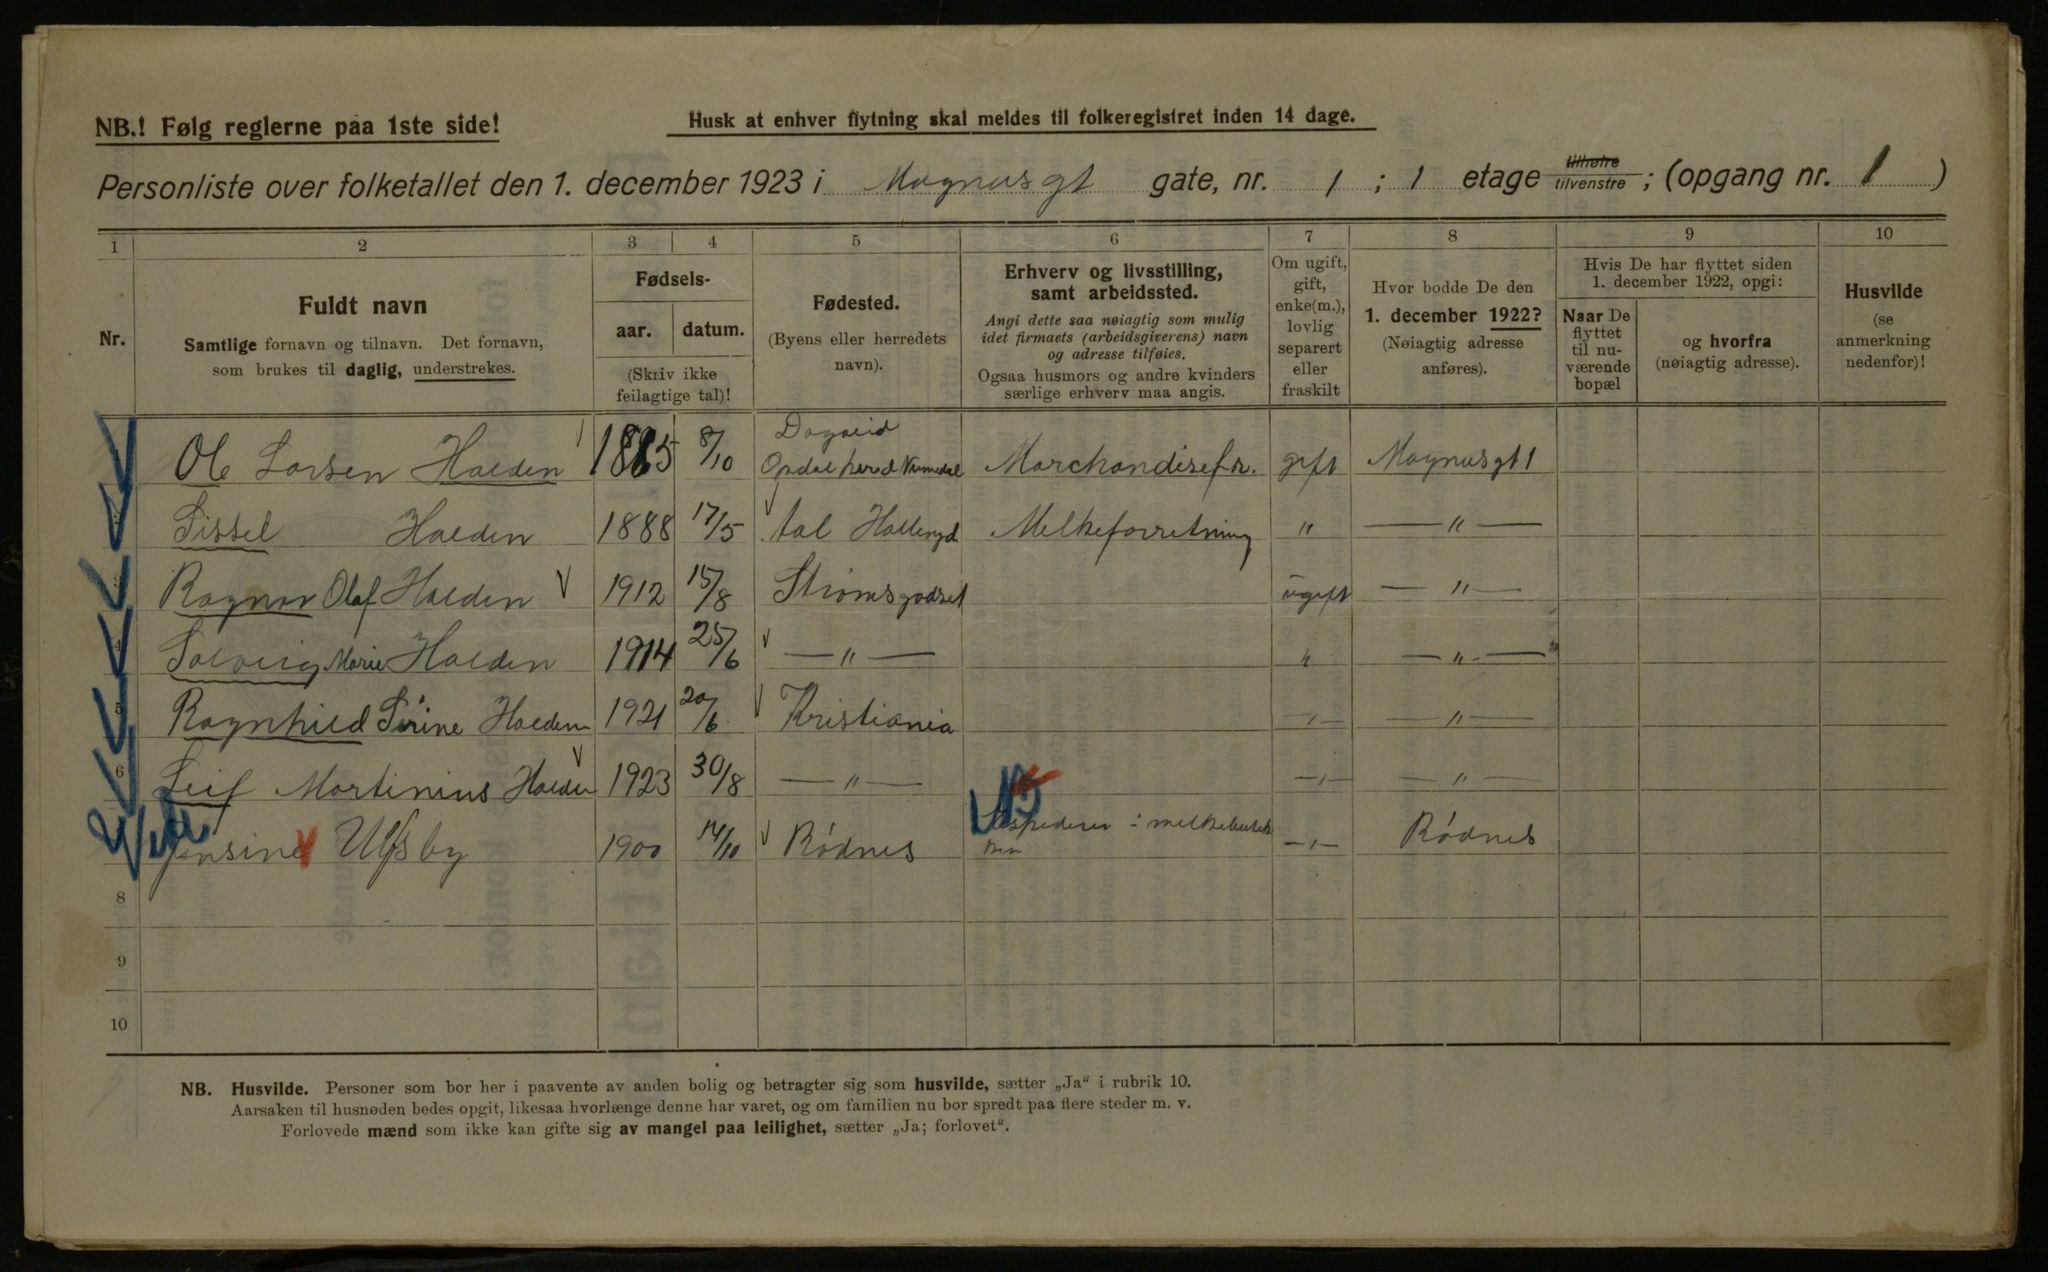 NB.! Følg reglerne paa 1ste side!
Husk at enhver flytning skal meldes til folkeregistret inden 14 dage.
Personliste over folketallet den 1. december 1923 i Magnusgt gate, nr. 1 ; 1 etage tilhøire tilvenstre ; (opgang nr. 1 )
1 2 3 4 5 6 7 8 9 10
Nr.
Fuldt navn
Samtlige fornavn og tilnavn. Det fornavn,
som brukes til daglig, understrekes.
Fødsels-
aar. datum.
(Skriv ikke
feilagtige tal)!
Fødested.
(Byens eller herredets
navn).
Erhverv og livsstilling,
samt arbeidssted.
Angi dette saa nøiagtig som mulig
idet firmaets (arbeidsgiverens) navn
og adresse tilføies.
Ogsaa husmors og andre kvinders
særlige erhverv maa angis.
Om ugift,
gift,
enke(m.),
lovlig
separert
eller
fraskilt
Hvor bodde De den
1. december 1922?
(Nøiagtig adresse
anføres).
Hvis De har flyttet siden
1. december 1922, opgi:
Naar De
flyttet
til nu-
værende
bopæl
og hvorfra
(nøiagtig adresse).
Husvilde
(se
anmerkning
nedenfor)!
Ole Larsen Halden 1885 8/10 Dagalid Opdal herred Numedal Marchandisefr. gift Magnusgt 1
Sissel Halden 1888 17/5 Aal Hallingd Melkeforretning " — " —
3 Ragnar Olaf Halden 1912 15/8 Strømsgodset ugift — " —
4 Solveig Marie Halden 1914 25/6 — " — " — " —
5 Ragnhild Sirine Halden 1921 20/6 Kristiania — " — — " —
6 Leif Martinius Halden 1923 30/8 — " — — " — — " —
Jensine Ulfsby 1900 14/10 Rødnes Expederer i melkebutik — " — Rødnes
8
9
10
NB. Husvilde. Personer som bor her i paavente av anden bolig og betragter sig som husvilde, sætter „Ja“ i rubrik 10.
Aarsaken til husnøden bedes opgit, likesaa hvorlænge denne har varet, og om familien nu bor spredt paa flere steder m. v.
Forlovede mænd som ikke kan gifte sig av mangel paa leilighet, sætter „Ja; forlovet“.